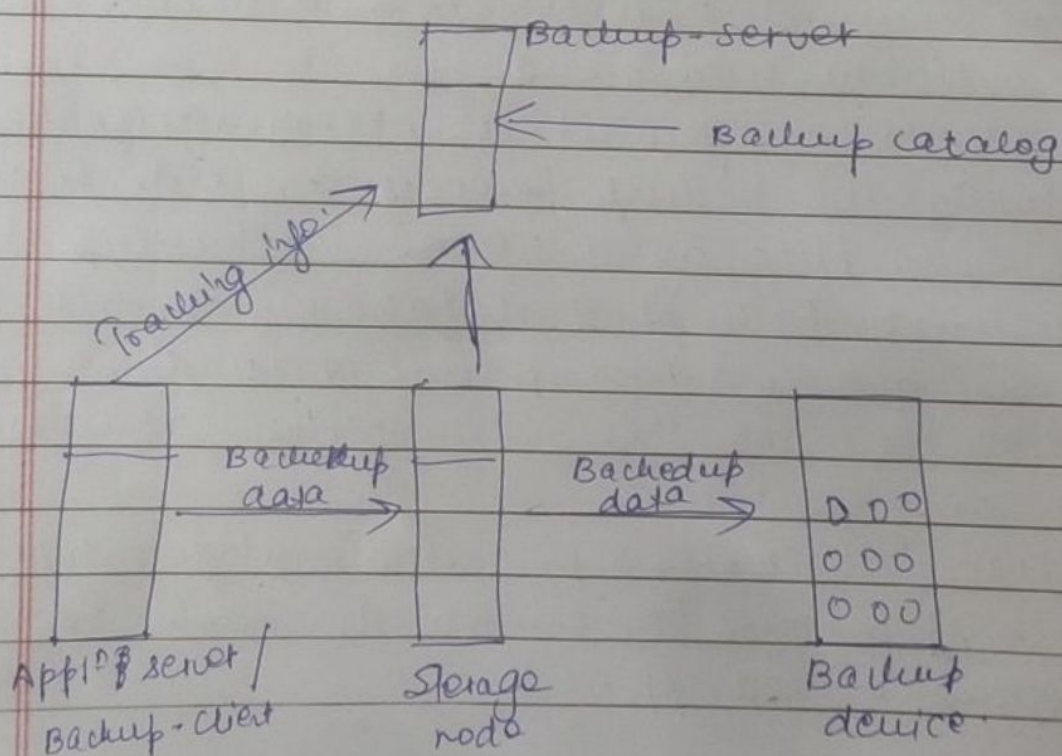 Backup-server
Backup catalog
Tracking info.
Backedup
data
Backedup
data
000
000
000
Appln server /
Backup-client
Storage
node
Backup
device.